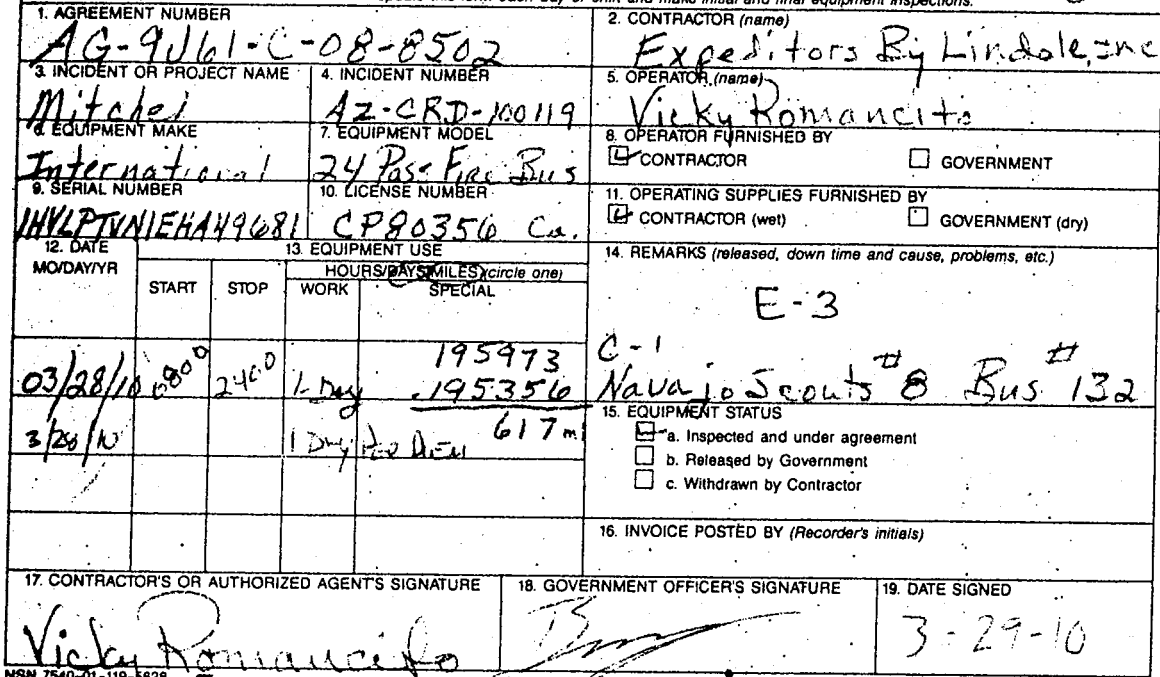 1. AGREEMENT NUMBER
AG-9J61-C-08-8502
2. CONTRACTOR (name)
Expeditors By Lindale, Inc
3. INCIDENT OR PROJECT NAME
Mitchel
4. INCIDENT NUMBER
AZ-CRD-100119
5. OPERATOR (name)
Vicky Romancito
6. EQUIPMENT MAKE
International
7. EQUIPMENT MODEL
24 Pass Fire Bus
8. OPERATOR FURNISHED BY
CONTRACTOR GOVERNMENT
9. SERIAL NUMBER
1HVLPTVN1EHA49681
10. LICENSE NUMBER
CP80356 Ca.
11. OPERATING SUPPLIES FURNISHED BY
CONTRACTOR (wet) GOVERNMENT (dry)
12. DATE
MO/DAY/YR
13. EQUIPMENT USE
HOURS/DAYS/MILES (circle one)
START STOP WORK SPECIAL
195973
03/28/10 0800 2400 1-Day 195356
3/28/10 1 Day Per Diem 617 mi
14. REMARKS (released, down time and cause, problems, etc.)
E-3
C-1
Navajo Scouts #8 Bus #132
15. EQUIPMENT STATUS
a. Inspected and under agreement
b. Released by Government
c. Withdrawn by Contractor
16. INVOICE POSTED BY (Recorder's initials)
17. CONTRACTOR'S OR AUTHORIZED AGENT'S SIGNATURE
Vicky Romancito
18. GOVERNMENT OFFICER'S SIGNATURE
19. DATE SIGNED
3-29-10
NSN 7540-01-119-5628